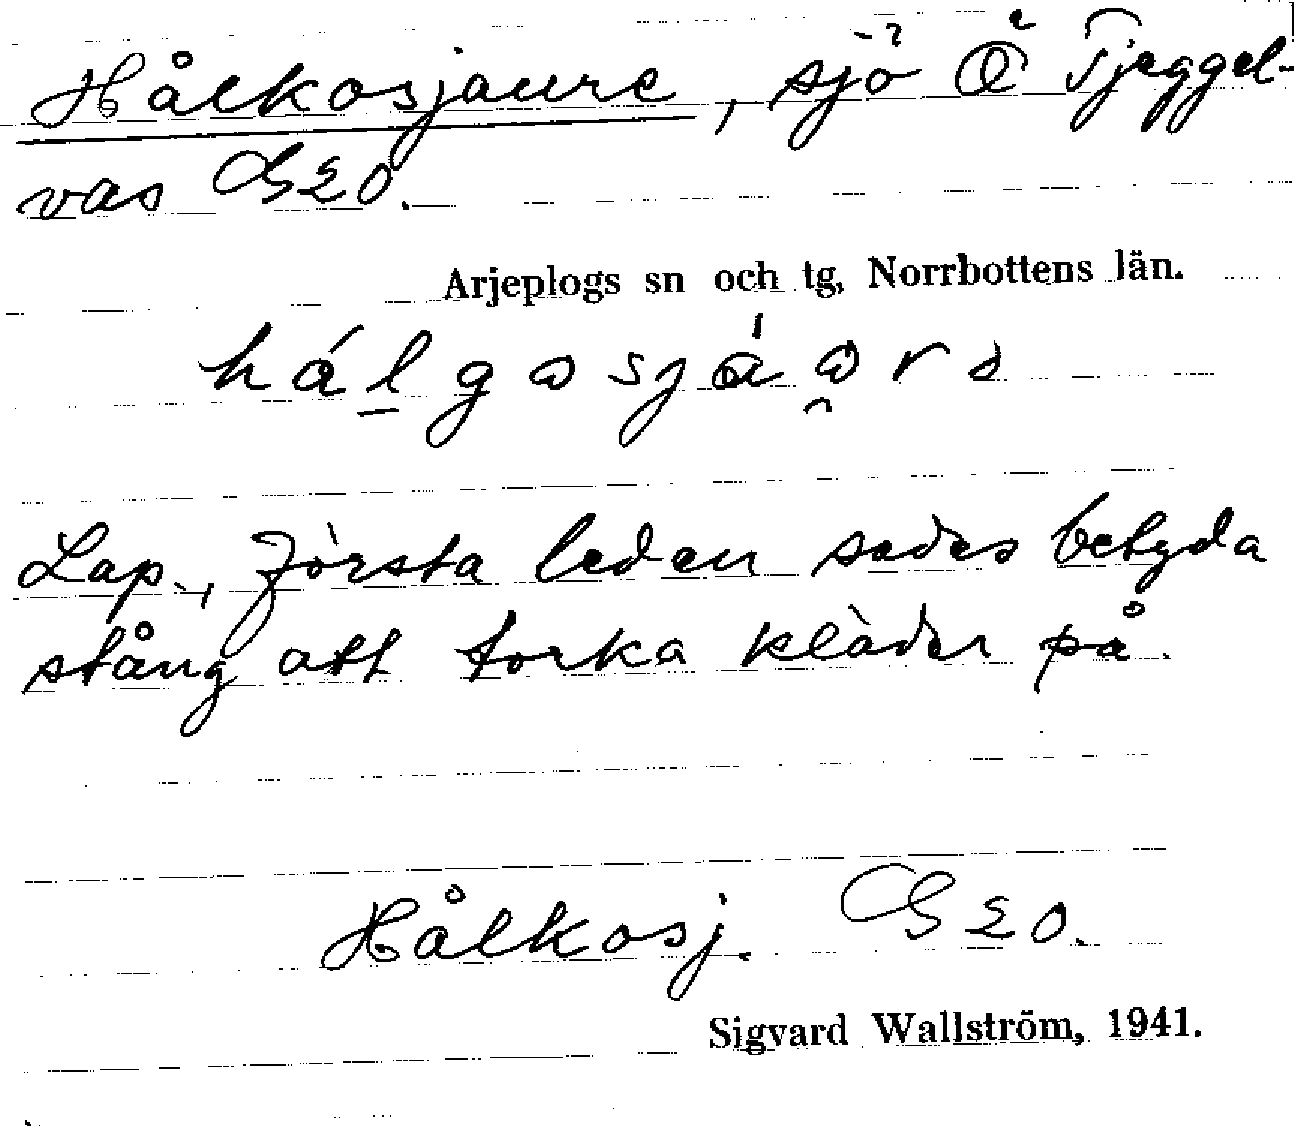 Hålkosjaure, sjö Ö Tjeggel-
vas GEO.
Arjeplogs sn och tg, Norrbottens län.
Lap., första leden sades betyda
stång att torka kläder på.
Hålkosj. GEO.
Sigvard Wallström, 1941.